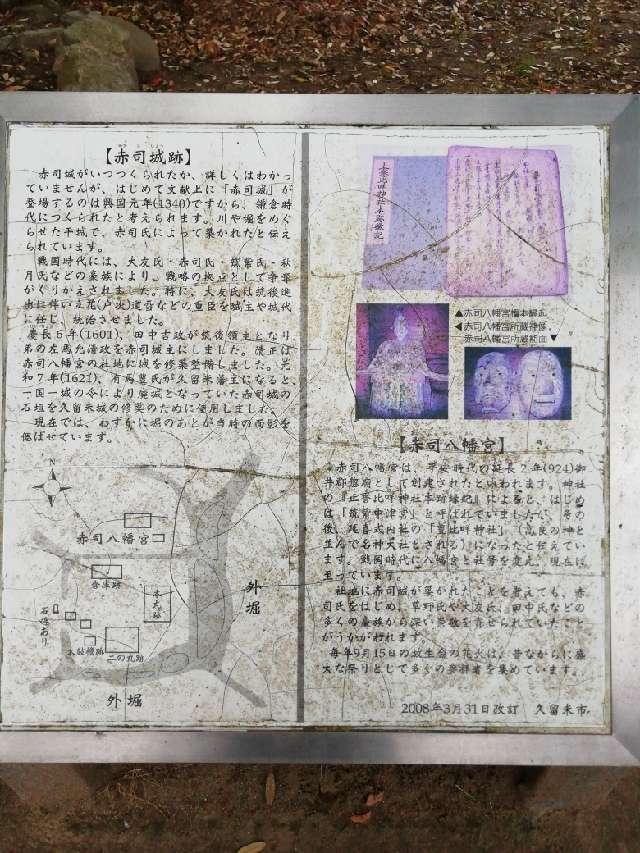 【赤司城跡】
赤司城がいつつくられたか、詳しくはわかっ
ていませんが、はじめて文献上に「赤司城」が
登場するのは興国元年(1340)ですから、鎌倉時
代につくられたと考えられます。川や堀をめぐ
らせた平城で、赤司氏によって築かれたと伝え
られています。
戦国時代には、大友氏・赤司氏・筑紫氏・秋
月氏などの豪族により、戦略の拠点として争奪
がくりかえされました。特に、大友氏は筑後進
出に伴い立花(戸次)道雪などの重臣を城主や城代
に任じ、統治させました。
慶長6年(1601)、田中吉政が筑後領主となり
弟の左馬允清政を赤司城主にしました。清正は
赤司八幡宮の社地に城を修築整備しました。元
和7年(1621)、有馬豊氏が久留米藩主になると、
一国一城の令により廃城となっていた赤司城の
石垣を久留米城の修築のために使用しました。
現在では、わずかに堀のあとが当時の面影を
偲ばせています。
N
赤司八幡宮
倉庫跡
本丸跡
石垣あり
太鼓櫓跡
二の丸跡
外堀
外堀
▲赤司八幡宮
◀赤司八幡宮所蔵神像
赤司八幡宮所蔵 ▼
【赤司八幡宮】
赤司八幡宮は、平安時代の延長2年(924)御
井郡惣廟として創建されたと いわれます。神社
の『止誉比咩神社本跡縁起』によると、はじめ
は「筑紫中津宮」と呼ばれていましたが、その
後、延喜式内社の「豊比咩神社」(高良の神と
並んで名神大社とされる)になったと伝えてい
ます。戦国時代に八幡宮と社号を変え、現在に
至っています。
社地に赤司城が築かれた を考えても、赤
司氏をはじめ、草野氏や大友氏、田中氏などの
多くの豪族から深い崇敬を寄せられていたこと
がうかがわれます。
毎年9月15日の放生会の花火は、昔ながらに盛
大な祭りとして多くの参拝者を集めています。
2008年3月31日改訂 久留米市